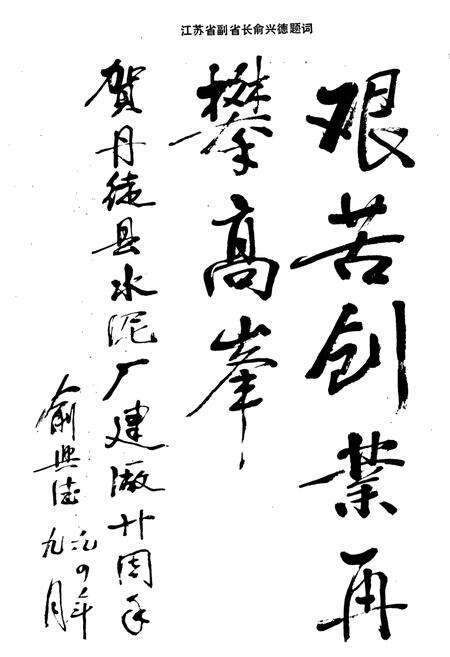 江苏省副省长俞兴德题词
艰苦创业再
攀高峯
贺丹徒县水泥厂建厰廿周年
俞兴德 九四年
九月